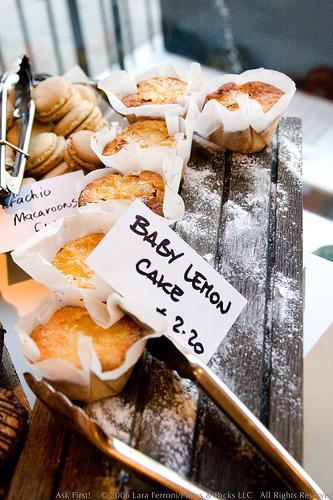 achio
Macaroons
BABY LEMON
CAKE
2.20
Ask First! © 2006 Lara Ferroni/ & Packs LLC All Rights Reserved